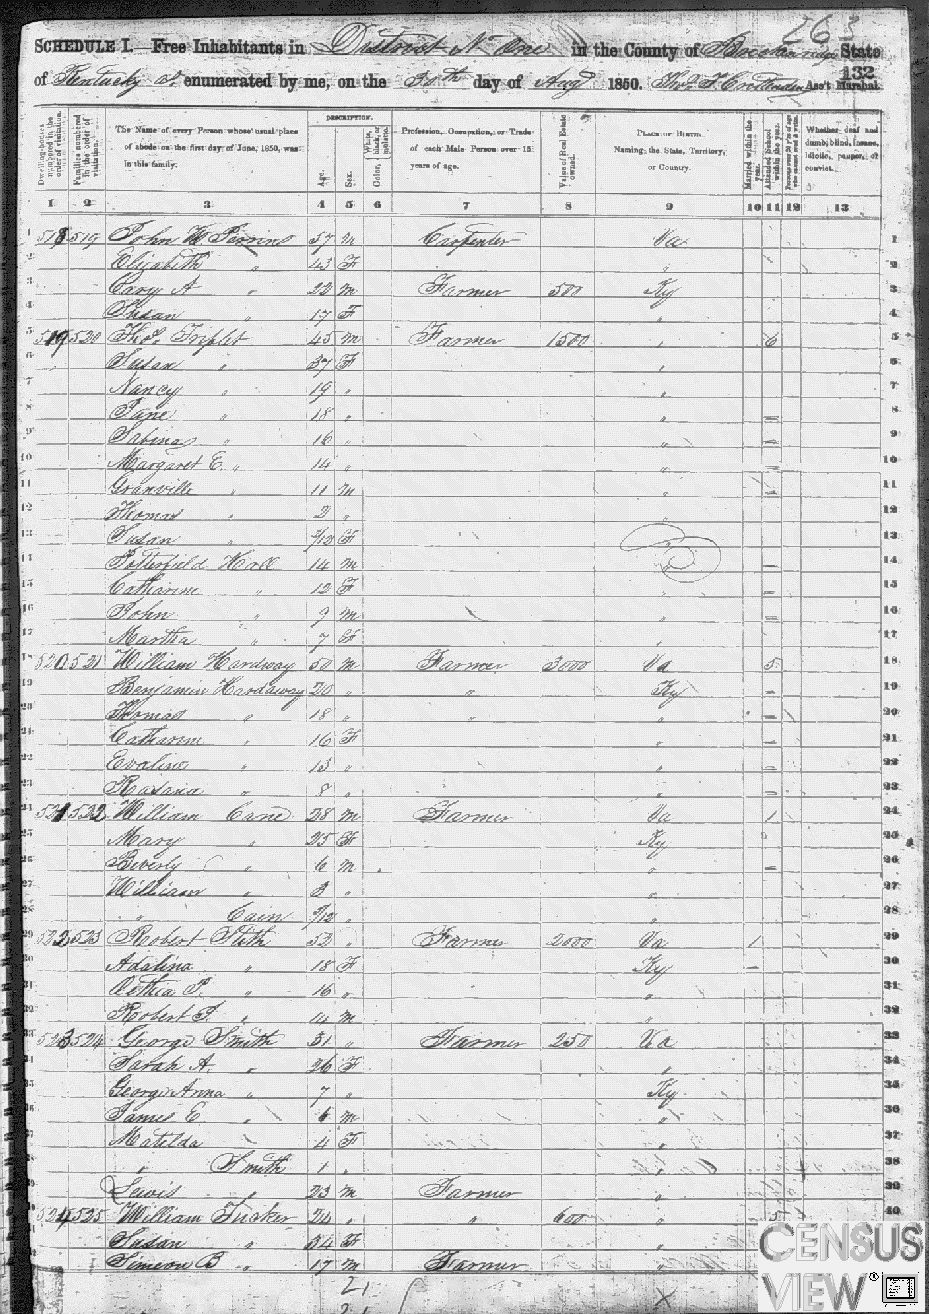 263
SCHEDULE I.—Free Inhabitants in District No One in the County of Breckenridge State
of Kentucky enumerated by me, on the 30th day of Augt 1850. Thos. F. Crittenden Ass't Marshal.
132
Dwelling-houses numbered in the order of visitation.
Families numbered in the order of visitation.
The Name of every Person whose usual place of abode on the first day of June, 1850, was in this family.
DESCRIPTION.
Age.
Sex.
Color, White, black, or mulatto.
Profession, Occupation, or Trade of each Male Person over 15 years of age.
Value of Real Estate owned.
PLACE OF BIRTH. Naming the State, Territory, or Country.
Married within the year.
Attended School within the year.
Persons over 20 y'rs of age who cannot read & write.
Whether deaf and dumb, blind, insane, idiotic, pauper, or convict.
1 2 3 4 5 6 7 8 9 10 11 12 13
1 518 519 John W Perrin 57 m Carpenter Va 1
2 Elizabeth " 43 F " 2
3 Cary A " 22 m Farmer 500 Ky 3
4 Susan " 17 F " 4
5 519 520 Thos. Triplet 45 m Farmer 1500 " 6 5
6 Susan " 37 F " 6
7 Nancy " 19 " " 7
8 Jane " 18 " " 8
9 Sabina " 16 " " 9
10 Margaret E. " 14 " " 10
11 Granville " 11 m " 11
12 Thomas " 2 " " 12
13 Susan " /12 F 13
14 Potterfield Hall 14 m " 14
15 Catharine " 12 F " 15
16 John " 9 m " 16
17 Martha " 7 F " 17
18 520 521 William Hardway 50 m Farmer 3000 Va 5 18
19 Benjamin Hardaway 20 " " Ky 19
20 Thomas " 18 " " " 20
21 Catharine " 16 F " 21
22 Evaline " 13 " " 22
23 Rosana " 8 " " 23
24 521 522 William Cane 28 m Farmer Va 1 24
25 Mary " 25 F Ky 25
26 Beverly " 6 m " 26
27 William " 3 " " 27
28 " Cain /12 " " 28
29 522 523 Robert Stith 52 " Farmer 2000 Va 1 29
30 Adalina " 18 F Ky 30
31 P. " 16 " " 31
32 Robert F. " 14 m " 32
33 523 524 George Smith 31 " Farmer 250 Va 33
34 Sarah A. " 26 F " 34
35 Georgi Anna " 7 " Ky 35
36 James E. " 6 m " 36
37 Matilda " 4 F " 37
38 " Smith 1 " " 38
39 Lewis " 23 m Farmer " 39
40 524 525 William Tucker 24 " " 600 " 5 40
Susan " 54 F "
Simeon B " 17 m Farmer "
21
CENSUS
VIEW®